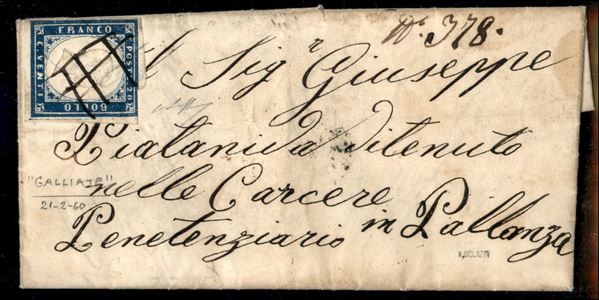 N.º 378.
FRANCO
C. VENTI
POSTE
20
BOLLO
Il Sig.r Giuseppe
Piatani ditenuto
nelle Carcere
Penetenziario in Pallanza
"GALLIATE"
21-2-60